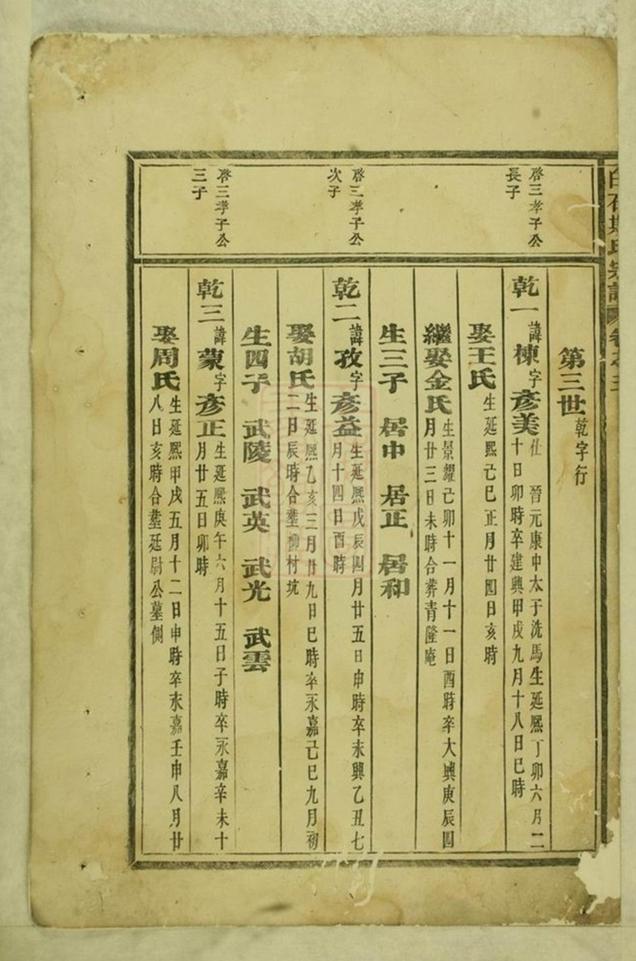 白石斯氏宗譜 卷之三
第三世 乾字行
啓三孝子公
長子
乾一 諱棟字彥美 仕晉元康中太子洗馬生延熙丁卯六月二
十日卯時卒建興甲戌九月十八日巳時
娶王氏 生延熙己巳正月廿四日亥時
繼娶金氏 生景耀己卯十一月十一日酉時卒大興庚辰四
月廿三日未時合葬青隆庵
生三子 居中 居正 居和
啓三孝子公
次子
乾二 諱孜字彥益 生延熙戊辰四月廿五日申時卒永興乙丑七
月十四日酉時
娶胡氏 生延熙乙亥三月廿九日巳時卒永嘉己巳九月初
二日辰時合塟柳村坑
生四子 武陵 武英 武光 武雲
啓三孝子公
三子
乾三 諱蒙字彥正 生延熙庚午六月十五日子時卒永嘉辛未十
月廿五日卯時
娶周氏 生延熙甲戌五月十二日申時卒永嘉壬申八月廿
八日亥時合塟延尉公墓側